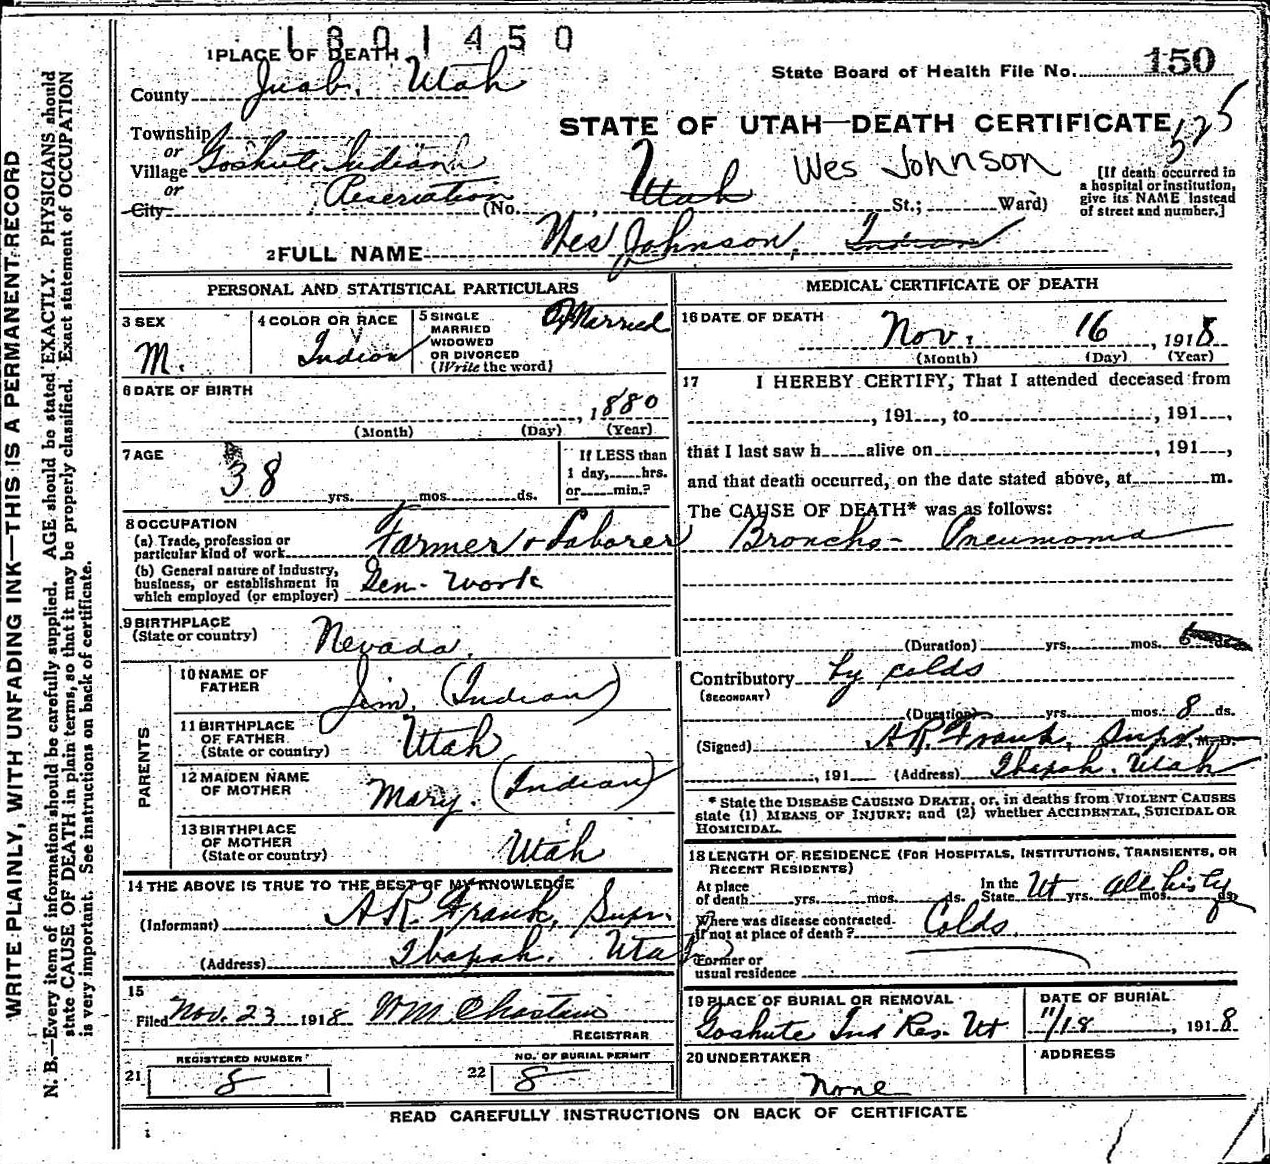 1801450
1 PLACE OF DEATH
County Juab. Utah
State Board of Health File No. 150
Township
or
Village Goshute Indian
or Reservation
City
STATE OF UTAH—DEATH CERTIFICATE 525
Utah Wes Johnson
(No. St.; Ward)
[If death occurred in
a hospital or institution,
give its NAME instead
of street and number.]
2 FULL NAME Wes Johnson, Indian
PERSONAL AND STATISTICAL PARTICULARS
3 SEX
M.
4 COLOR OR RACE
Indian
5 SINGLE
MARRIED
WIDOWED
OR DIVORCED
(Write the word)
Married
6 DATE OF BIRTH
, 1880
(Month) (Day) (Year)
7 AGE
38 yrs. mos. ds.
If LESS than
1 day, hrs.
or min.?
8 OCCUPATION
(a) Trade, profession or
particular kind of work Farmer & Laborer
(b) General nature of industry,
business, or establishment in
which employed (or employer) Gen- work
9 BIRTHPLACE
(State or country) Nevada.
PARENTS
10 NAME OF
FATHER Jim. (Indian)
11 BIRTHPLACE
OF FATHER
(State or country) Utah
12 MAIDEN NAME
OF MOTHER Mary. (Indian)
13 BIRTHPLACE
OF MOTHER
(State or country) Utah
14 THE ABOVE IS TRUE TO THE BEST OF MY KNOWLEDGE
(Informant) A.R. Frank, Supr.
(Address) Ibapah. Utah
15
Filed Nov. 23 1918 Wm. Chastain
REGISTRAR
21 REGISTERED NUMBER
8
22 NO. OF BURIAL PERMIT
8
MEDICAL CERTIFICATE OF DEATH
16 DATE OF DEATH
Nov. 16, 1918
(Month) (Day) (Year)
17 I HEREBY CERTIFY, That I attended deceased from
, 191 , to , 191 ,
that I last saw h alive on , 191 ,
and that death occurred, on the date stated above, at m.
The CAUSE OF DEATH* was as follows:
Broncho- Pneumonia
(Duration) yrs. mos. ds.
Contributory by colds
(SECONDARY)
(Duration) yrs. mos. 8 ds.
(Signed) A.R. Frank, Supr. M. D.
, 191 (Address) Ibapah. Utah
* State the DISEASE CAUSING DEATH, or, in deaths from VIOLENT CAUSES
state (1) MEANS OF INJURY; and (2) whether ACCIDENTAL, SUICIDAL OR
HOMICIDAL.
18 LENGTH OF RESIDENCE (FOR HOSPITALS, INSTITUTIONS, TRANSIENTS, OR
RECENT RESIDENTS)
At place
of death yrs. mos. ds.
In the
State Ut yrs. all his mos. ds.
Where was disease contracted
if not at place of death? Colds.
Former or
usual residence
19 PLACE OF BURIAL OR REMOVAL
Goshute Ind Res. Ut
DATE OF BURIAL
11/18, 1918
20 UNDERTAKER
None
ADDRESS
READ CAREFULLY INSTRUCTIONS ON BACK OF CERTIFICATE
WRITE PLAINLY, WITH UNFADING INK—THIS IS A PERMANENT RECORD
N. B.—Every item of information should be carefully supplied. AGE should be stated EXACTLY. PHYSICIANS should
state CAUSE OF DEATH in plain terms, so that it may be properly classified. Exact statement of OCCUPATION
is very important. See instructions on back of certificate.